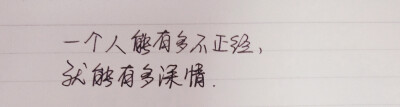 一个人能有多不正经，
就能有多深情.